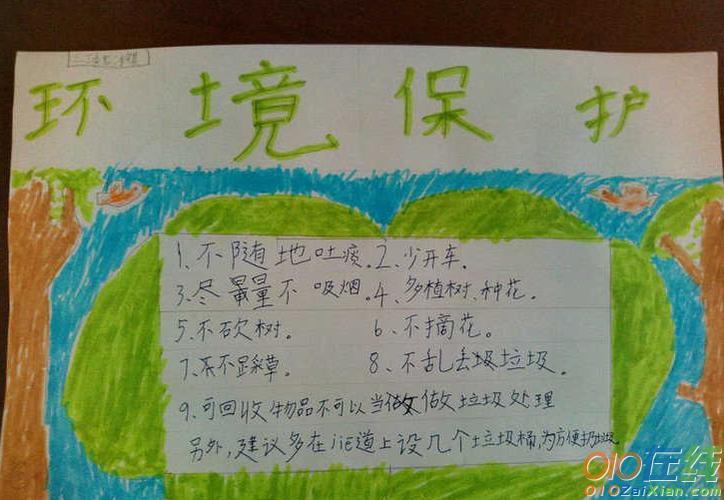 环境保护
1、不随地吐痰。2、少开车。
3、尽量不吸烟。4、多植树、种花。
5、不砍树。 6、不摘花。
7、不踩草。 8、不乱丢垃圾。
9、可回收物品不可以当做垃圾处理
另外,建议多在jie道上设几个垃圾桶,为方便扔垃圾
010在线
010ZaiXian.com